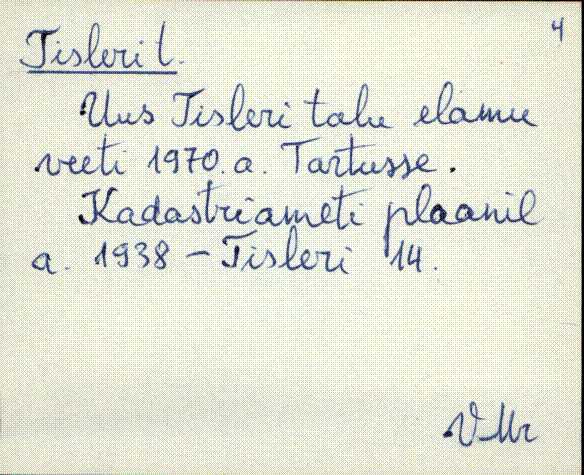 4
Tisleri t.
Uus Tisleri talu elamu
veeti 1970. a. Tartusse.
Kadastriameti plaanil
a. 1938 – Tisleri 14.
VMr